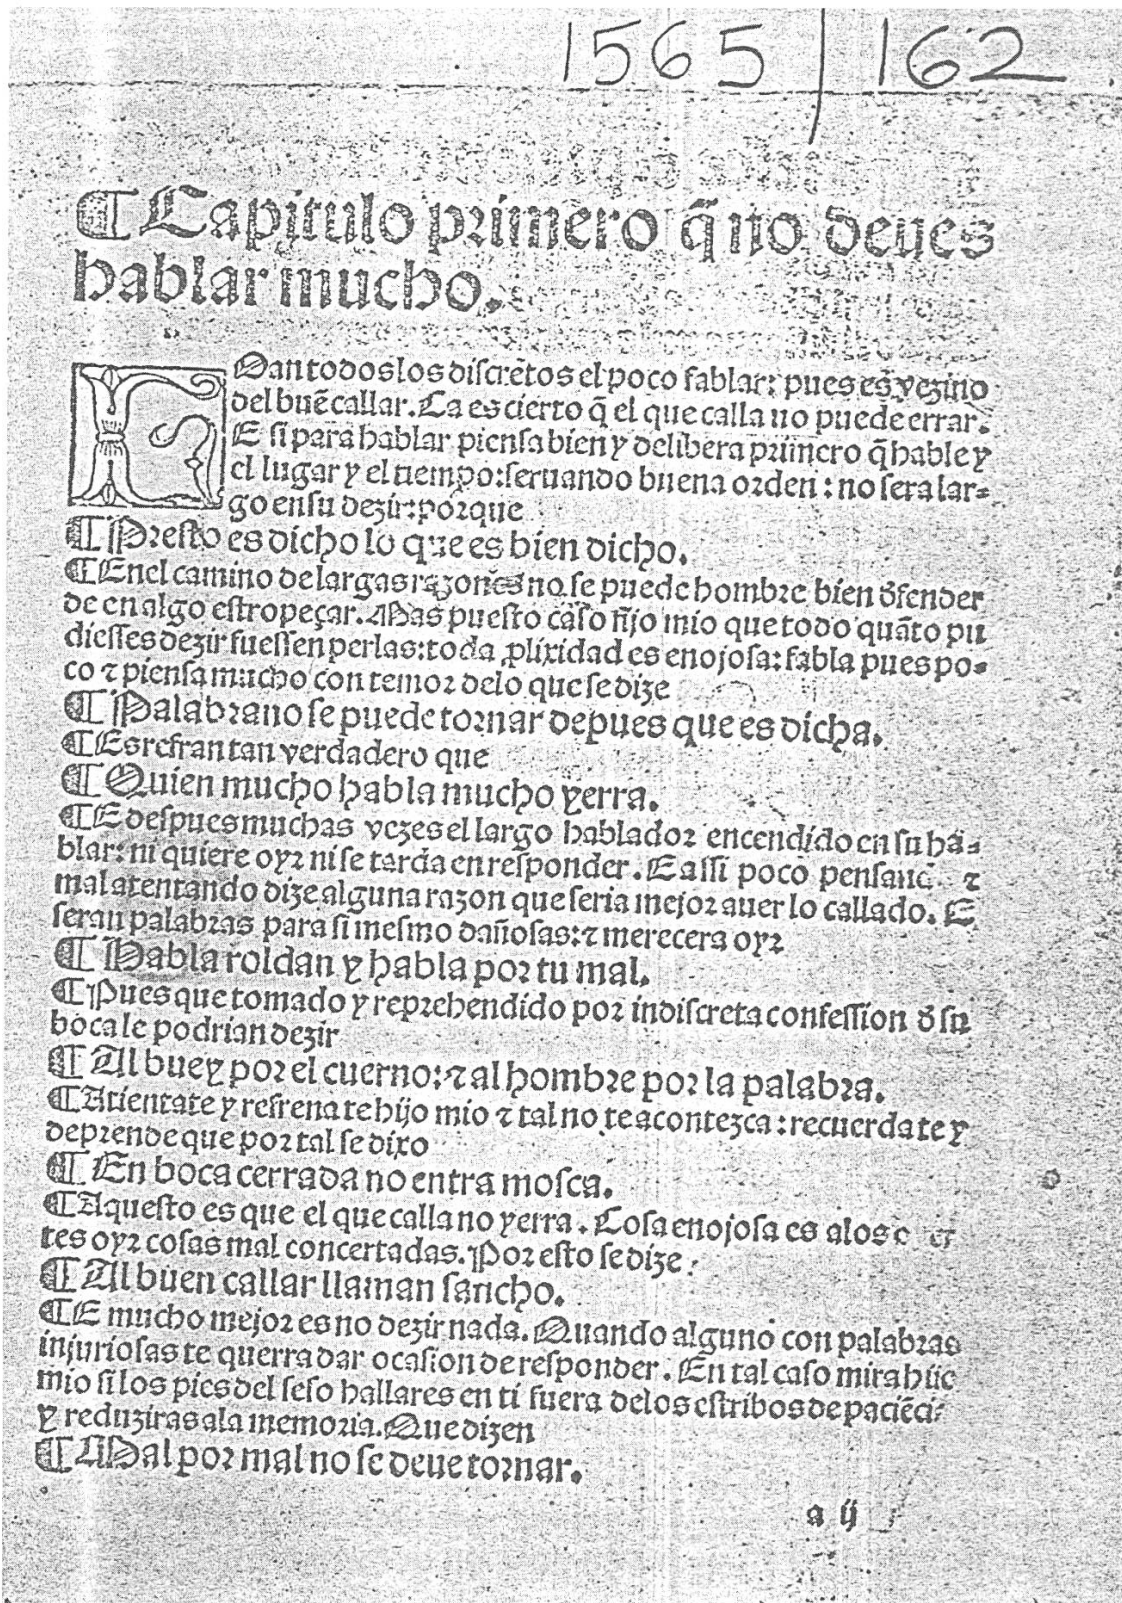 1565 / 162
¶ Capitulo primero q̃ no deues
hablar mucho.
LOan todos los discrẽtos el poco fablar: pues es vezino
del buẽ callar. Ca es cierto q̃ el que calla no puede errar.
E si para hablar piensa bien y delibera primero q̃ hable y
el lugar y el tiempo: seruando buena orden: no sera lar=
go en su dezir: porque
¶ Presto es dicho lo que es bien dicho.
¶ En el camino de largas razones no se puede hombre bien d̃fender
de en algo estropeçar. Mas puesto caso fijo mio que todo quãto pu
diesses dezir fuessen perlas: toda ꝓlixidad es enojosa: fabla pues po=
co ⁊ piensa mucho con temor delo que se dize
¶ Palabra no se puede tornar depues que es dicha.
¶ Es refran tan verdadero que
¶ Quien mucho habla mucho yerra.
¶ E despues muchas vezes el largo hablador encendido en su ha=
blar: ni quiere oyr ni se tarda en responder. E assi poco ⁊
mal atentando dize alguna razon que seria mejor auer lo callado. E
seran palabras para si mesmo dañosas: ⁊ merecera oyr
¶ Habla roldan y habla por tu mal.
¶ Pues que tomado y reprehendido por indiscreta confession d̃ su
boca le podrian dezir
¶ Al buey por el cuerno: ⁊ al hombre por la palabra.
¶ Atientate y refrena te hijo mio ⁊ tal no te acontezca: recuerda te y
deprende que por tal se dixo
¶ En boca cerrada no entra mosca.
¶ Aquesto es que el que calla no yerra. Cosa enojosa es a los
tes oyr cosas mal concertadas. Por esto se dize:
¶ Al buen callar llaman sancho.
¶ E mucho mejor es no dezir nada. Quando alguno con palabras
injuriosas te querra dar ocasion de responder. En tal caso mira
mio si los pies del seso hallares en ti fuera delos estribos de
y reduziras a la memoria. Que dizen
¶ Mal por mal no se deue tornar.
a ij